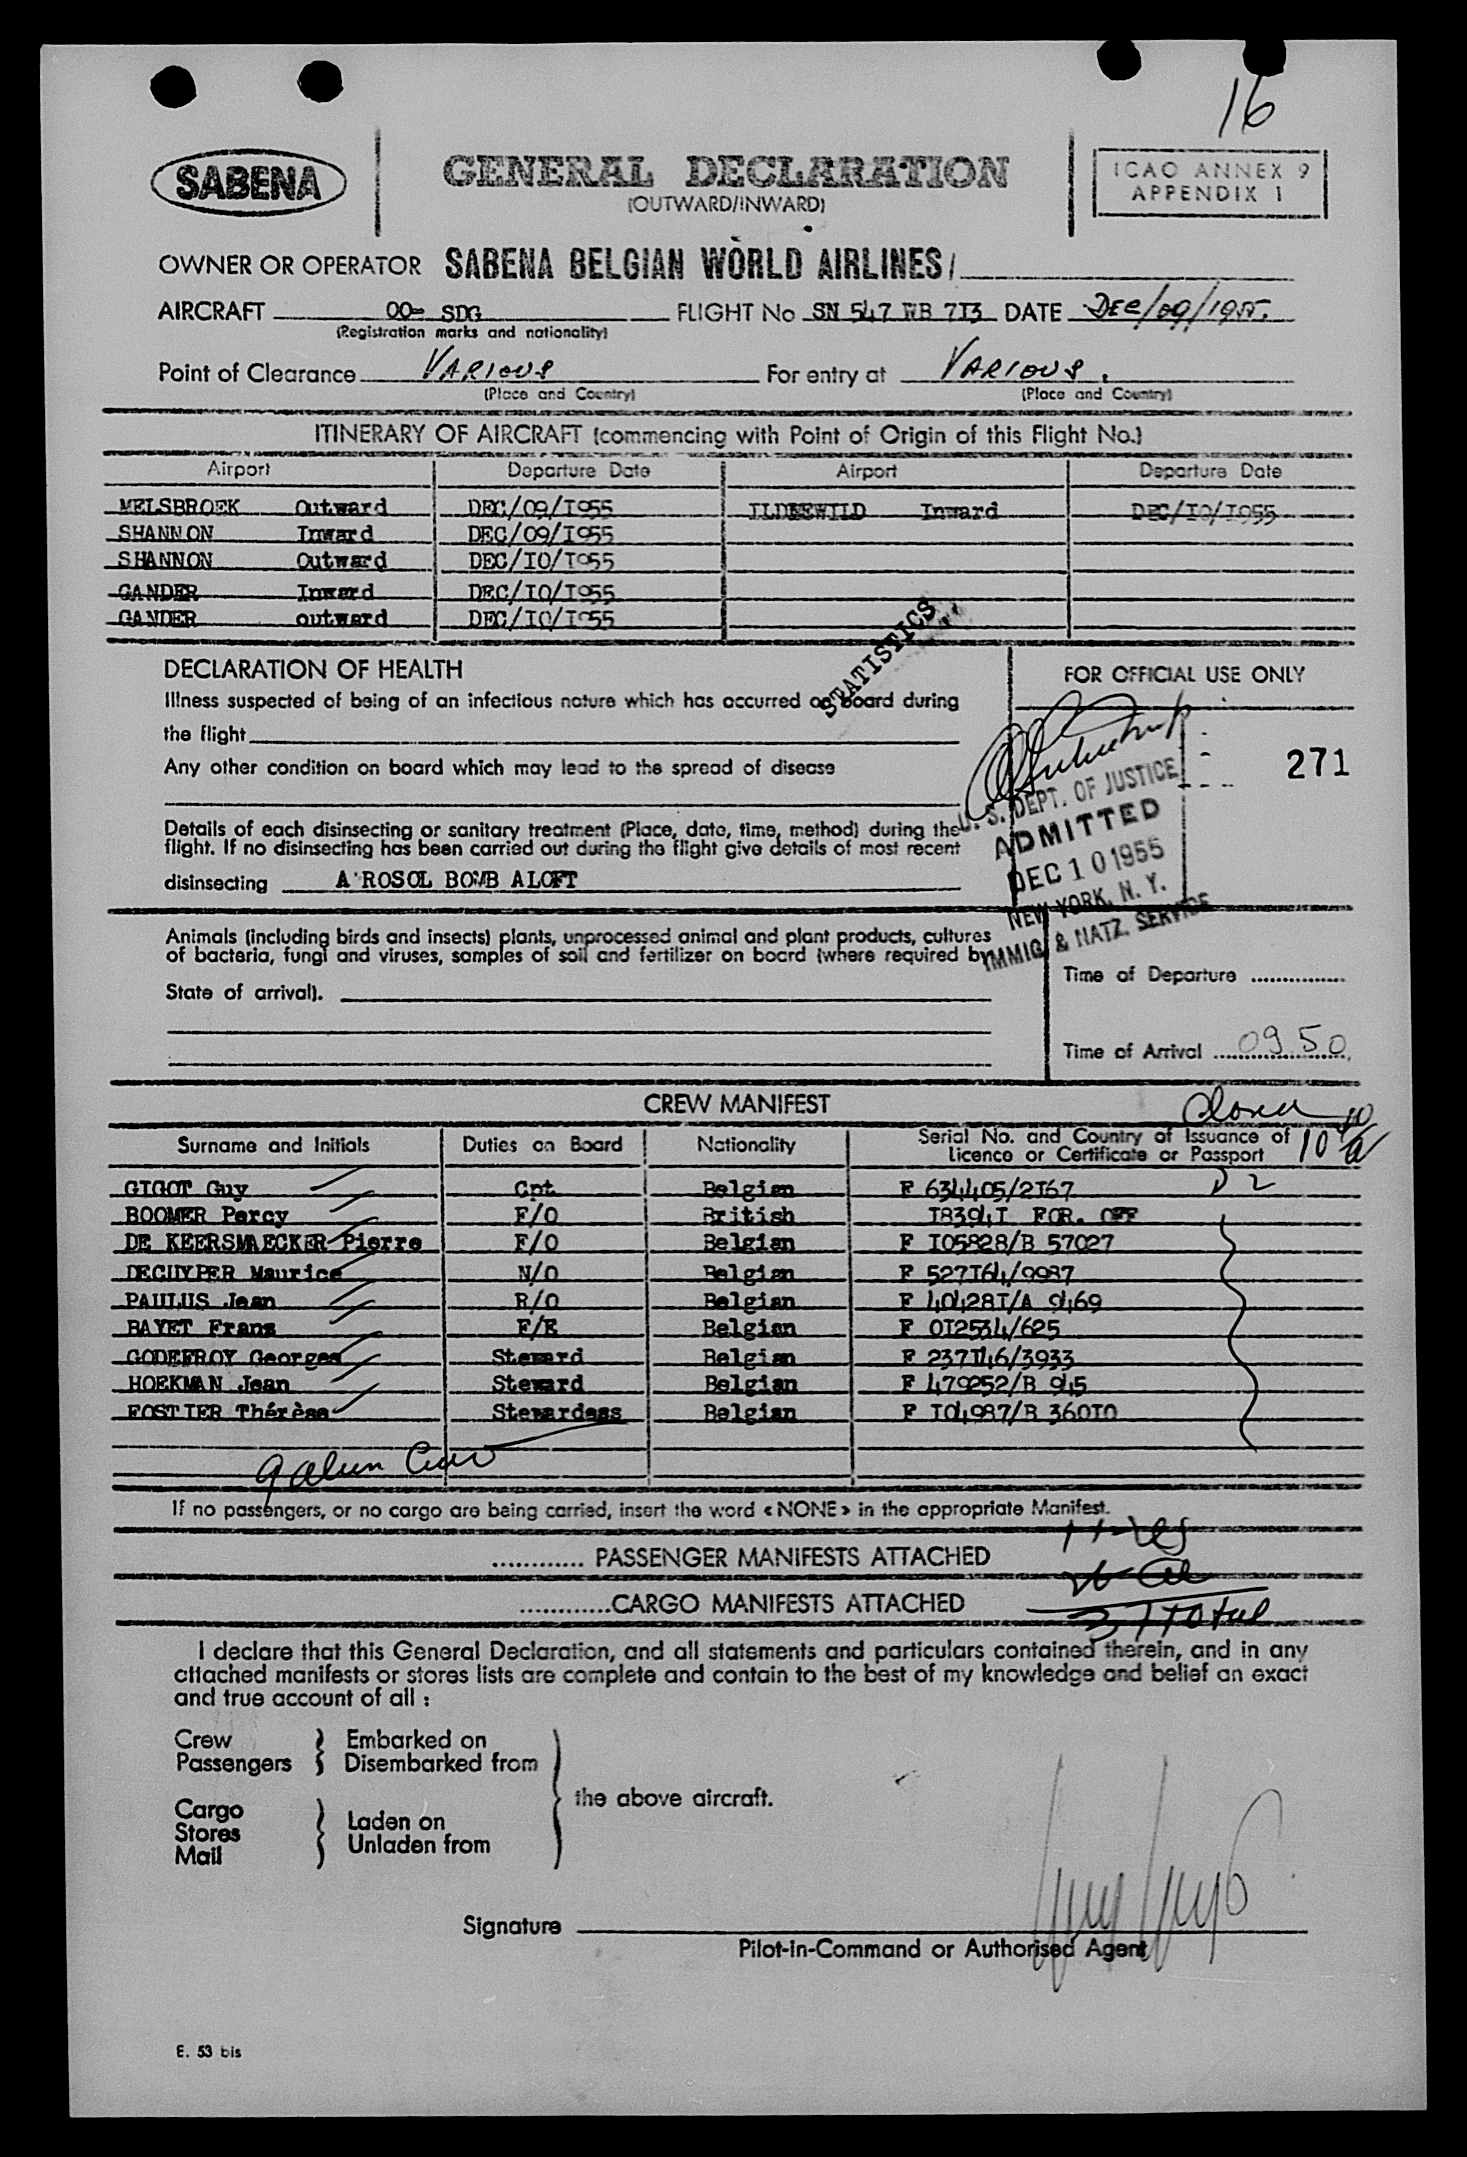 16
SABENA
GENERAL DECLARATION
(OUTWARD/INWARD)
ICAO ANNEX 9
APPENDIX 1
OWNER OR OPERATOR SABENA BELGIAN WORLD AIRLINES/
AIRCRAFT OO- SDG FLIGHT No SN 547 713 DATE DEC/09/1955.
(Registration marks and nationality)
Point of Clearance VARIOUS For entry at VARIOUS.
(Place and Country) (Place and Country)
ITINERARY OF AIRCRAFT (commencing with Point of Origin of this Flight No.)
Airport Departure Date Airport Departure Date
MELSBROEK Outward DEC/09/I955 ILDEEWILD Inward DEC/IO/I955
SHANNON Inward DEC/09/I955
SHANNON Outward DEC/IO/I955
GANDER Inward DEC/IO/I955
GANDER outward DEC/IO/I955
STATISTICS
DECLARATION OF HEALTH
Illness suspected of being of an infectious nature which has occurred on board during
the flight
Any other condition on board which may lead to the spread of disease
Details of each disinsecting or sanitary treatment (Place, date, time, method) during the
flight. If no disinsecting has been carried out during the flight give details of most recent
disinsecting A'ROSOL BOMB ALOFT
FOR OFFICIAL USE ONLY
271
U. S. DEPT. OF JUSTICE
ADMITTED
DEC 10 1955
NEW YORK, N. Y.
IMMIG. & NATZ. SERVICE
Animals (including birds and insects) plants, unprocessed animal and plant products, cultures
of bacteria, fungi and viruses, samples of soil and fertilizer on board (where required by
State of arrival).
Time of Departure ...............
Time of Arrival 0950
CREW MANIFEST
Surname and Initials Duties on Board Nationality Serial No. and Country of Issuance of
Licence or Certificate or Passport
GIGOT Guy Cpt Belgian F 634405/2I67 D2
BOOMER Percy F/O British I8394I FOR. OFF
DE KEERSMAECKER Pierre F/O Belgian F I05828/B 57027
DECUYPER Maurice N/O Belgian F 527I64/9987
PAULUS Jean R/O Belgian F 40428I/A 9469
BAYET Frans F/E Belgian F OI2534/625
GODEFROY Georges Steward Belgian F 237I46/3933
HOEKMAN Jean Steward Belgian F 479252/B 945
FOSTIER Thérèse Stewardess Belgian F I04987/B 360I0
If no passengers, or no cargo are being carried, insert the word « NONE » in the appropriate Manifest.
............ PASSENGER MANIFESTS ATTACHED
............CARGO MANIFESTS ATTACHED
total
I declare that this General Declaration, and all statements and particulars contained therein, and in any
attached manifests or stores lists are complete and contain to the best of my knowledge and belief an exact
and true account of all :
Crew Embarked on
Passengers Disembarked from
the above aircraft.
Cargo Laden on
Stores Unladen from
Mail
Signature
Pilot-in-Command or Authorised Agent
E. 53 bis